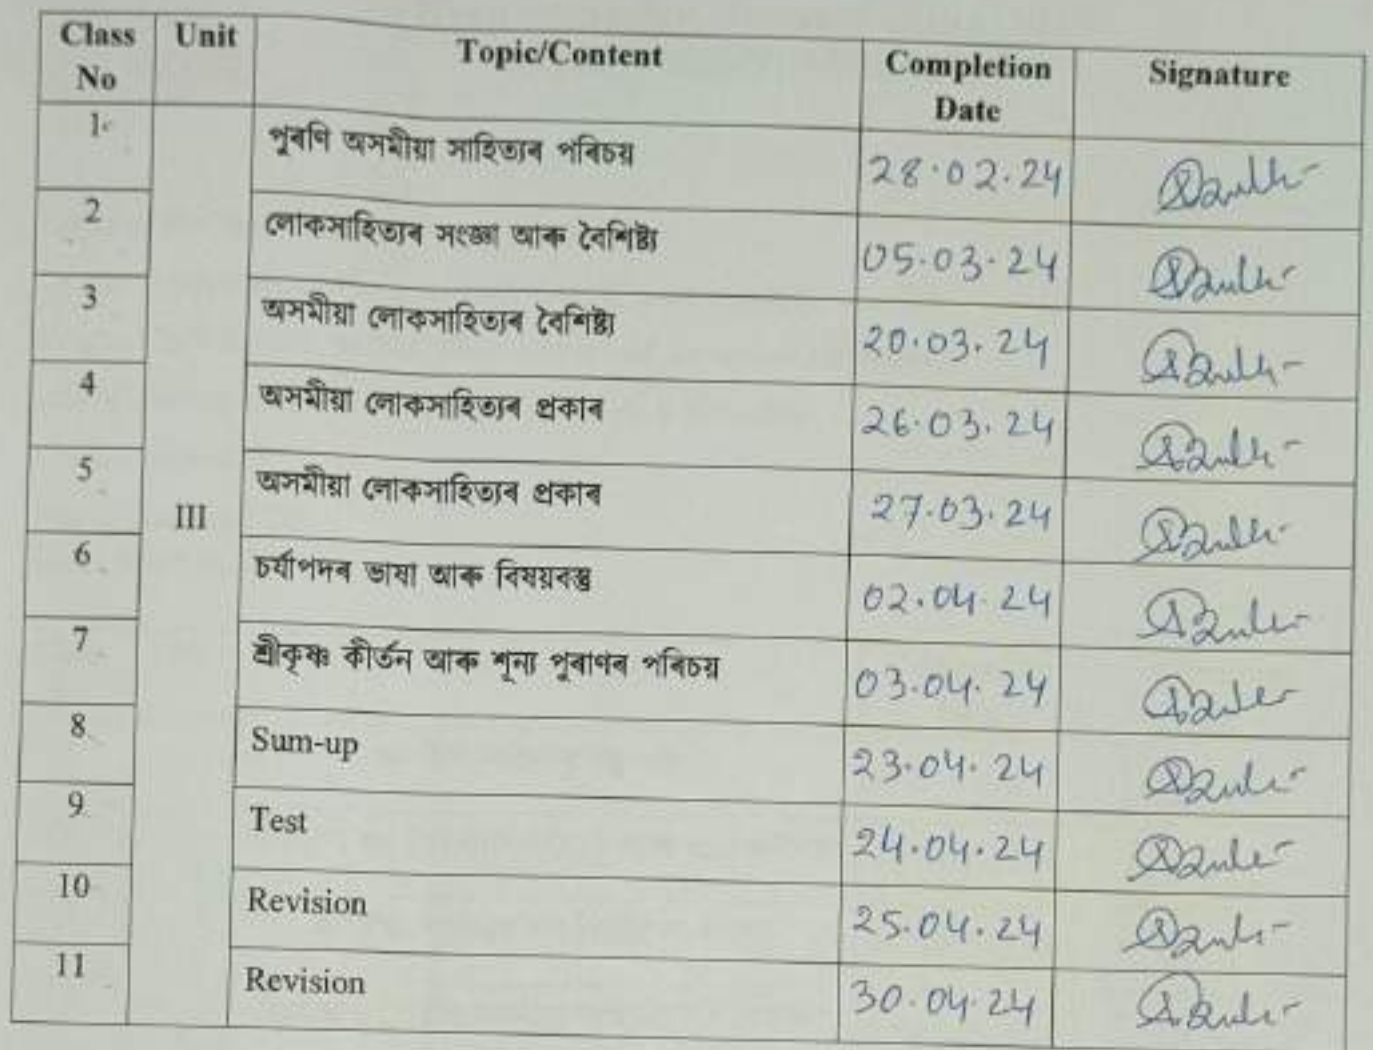 Class No Unit Topic/Content Completion Date Signature
1 পুৰণি অসমীয়া সাহিত্যৰ পৰিচয় 28.02.24
2 লোকসাহিত্যৰ সংজ্ঞা আৰু বৈশিষ্ট্য 05.03.24
3 অসমীয়া লোকসাহিত্যৰ বৈশিষ্ট্য 20.03.24
4 অসমীয়া লোকসাহিত্যৰ প্ৰকাৰ 26.03.24
5 III অসমীয়া লোকসাহিত্যৰ প্ৰকাৰ 27.03.24
6 চৰ্যাপদৰ ভাষা আৰু বিষয়বস্তু 02.04.24
7 শ্ৰীকৃষ্ণ কীৰ্তন আৰু শূন্য পুৰাণৰ পৰিচয় 03.04.24
8 Sum-up 23.04.24
9 Test 24.04.24
10 Revision 25.04.24
11 Revision 30.04.24